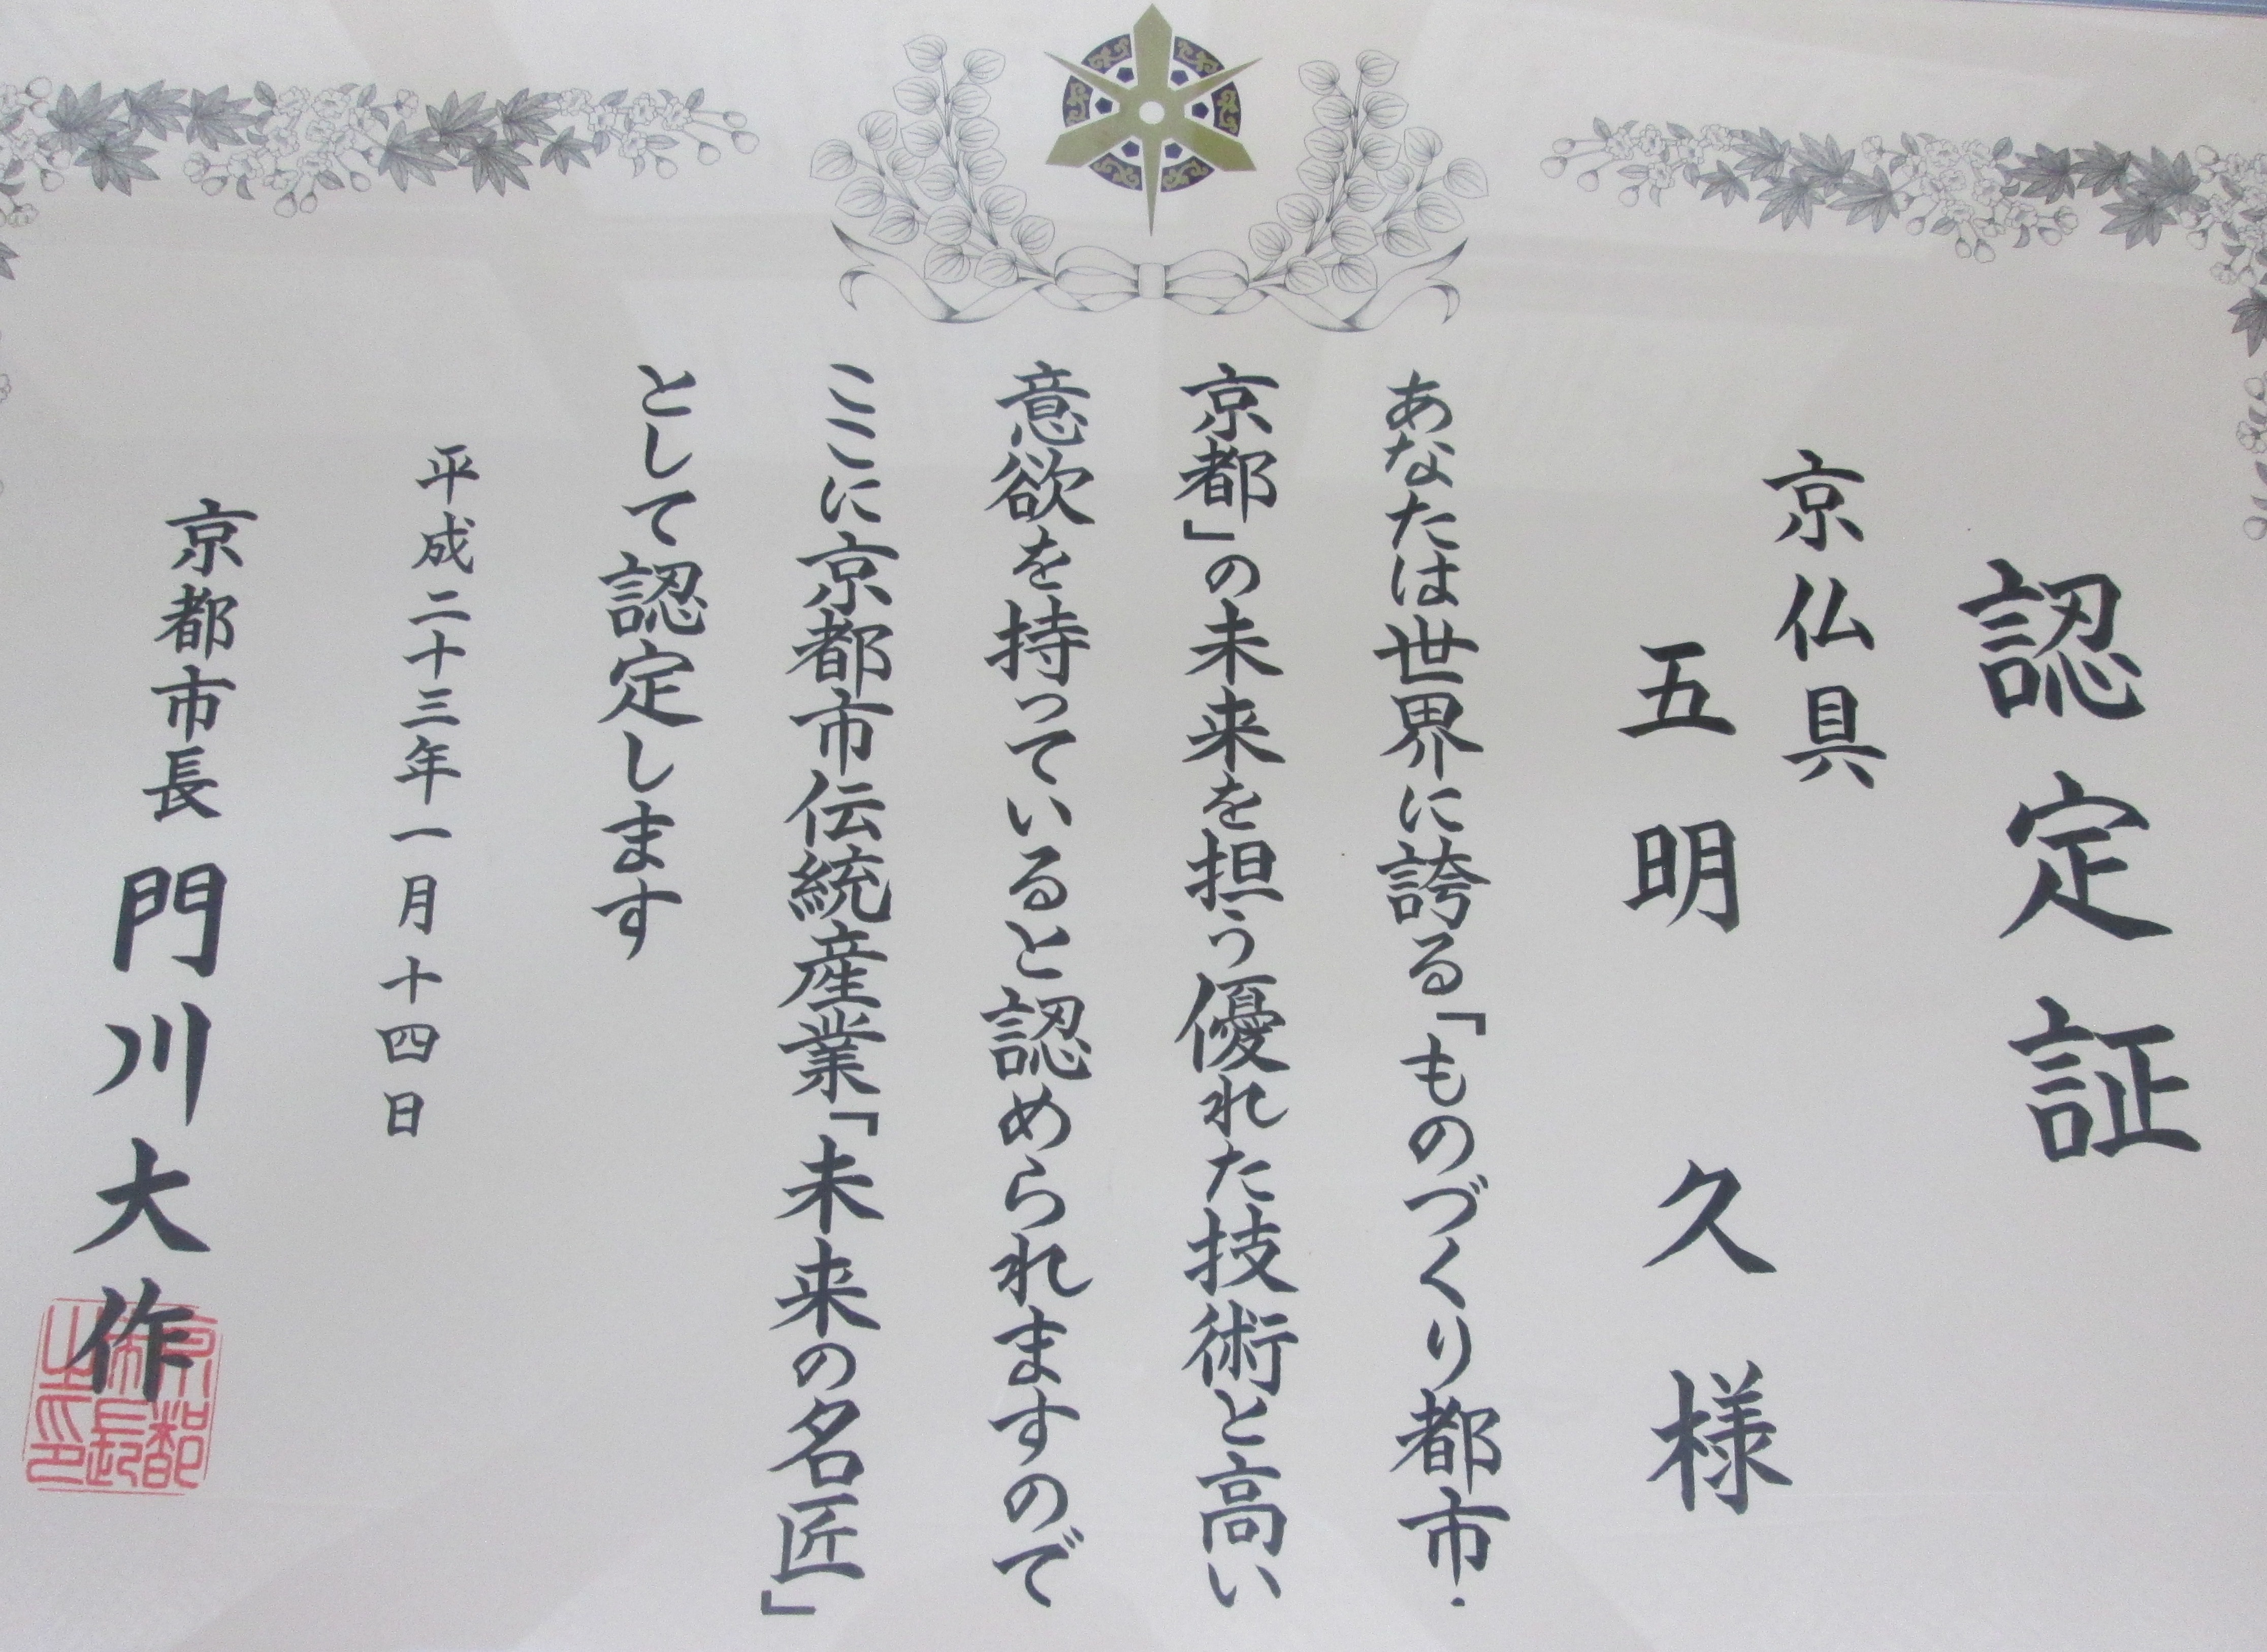 認定証
京仏具
五明 久 様
あなたは世界に誇る「ものづくり都市・
京都」の未来を担う優れた技術と高い
意欲を持っていると認められますので
ここに京都市伝統産業「未来の名匠」
として認定します
平成二十三年一月十四日
京都市長 門川大作
京都市長之印